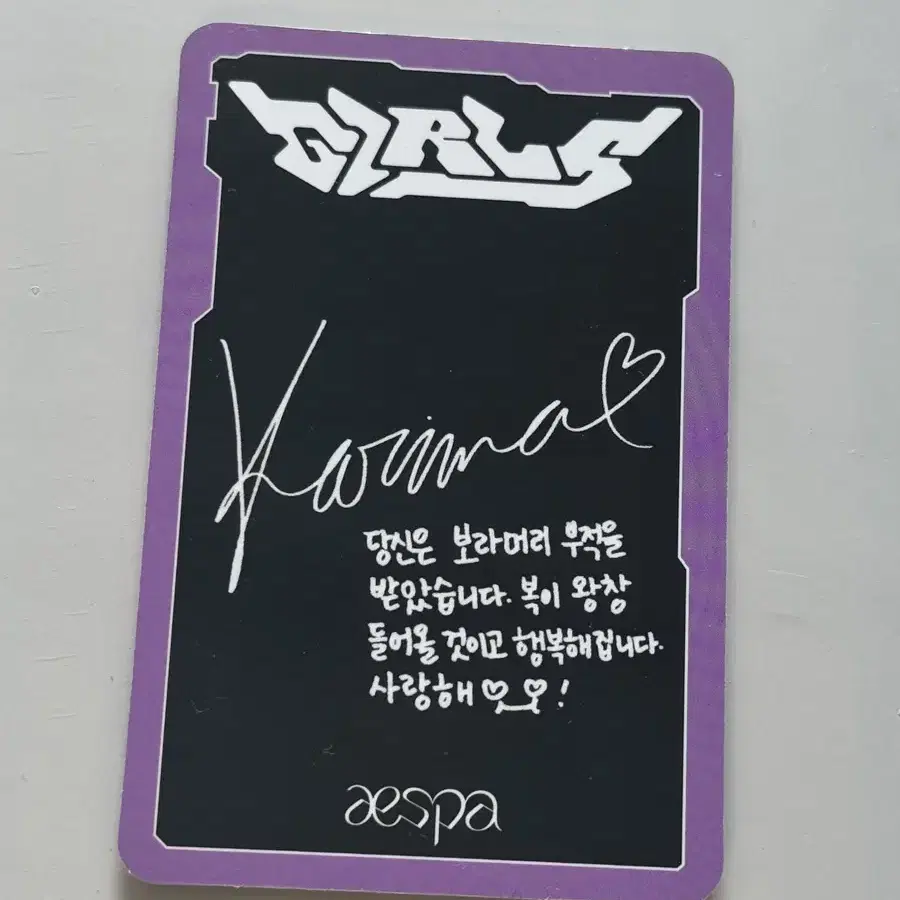 GIRLS
Karina
당신은 보라머리 부적을
받았습니다. 복이 왕창
들어올 것이고 행복해집니다.
사랑해 !
aespa